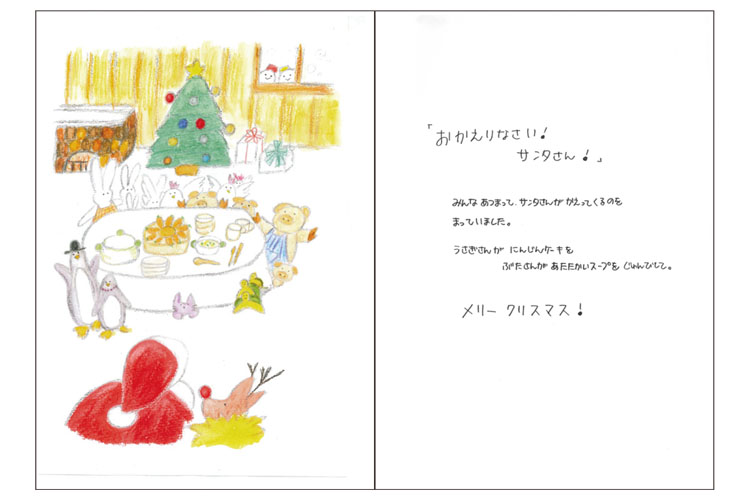 「おかえりなさい!
サンタさん!」
みんなあつまって、サンタさんがかえってくるのを
まっていました。
うさぎさんが にんじんケーキを
ぶたさんが あたたかいスープを じゅんびして。
メリー クリスマス!